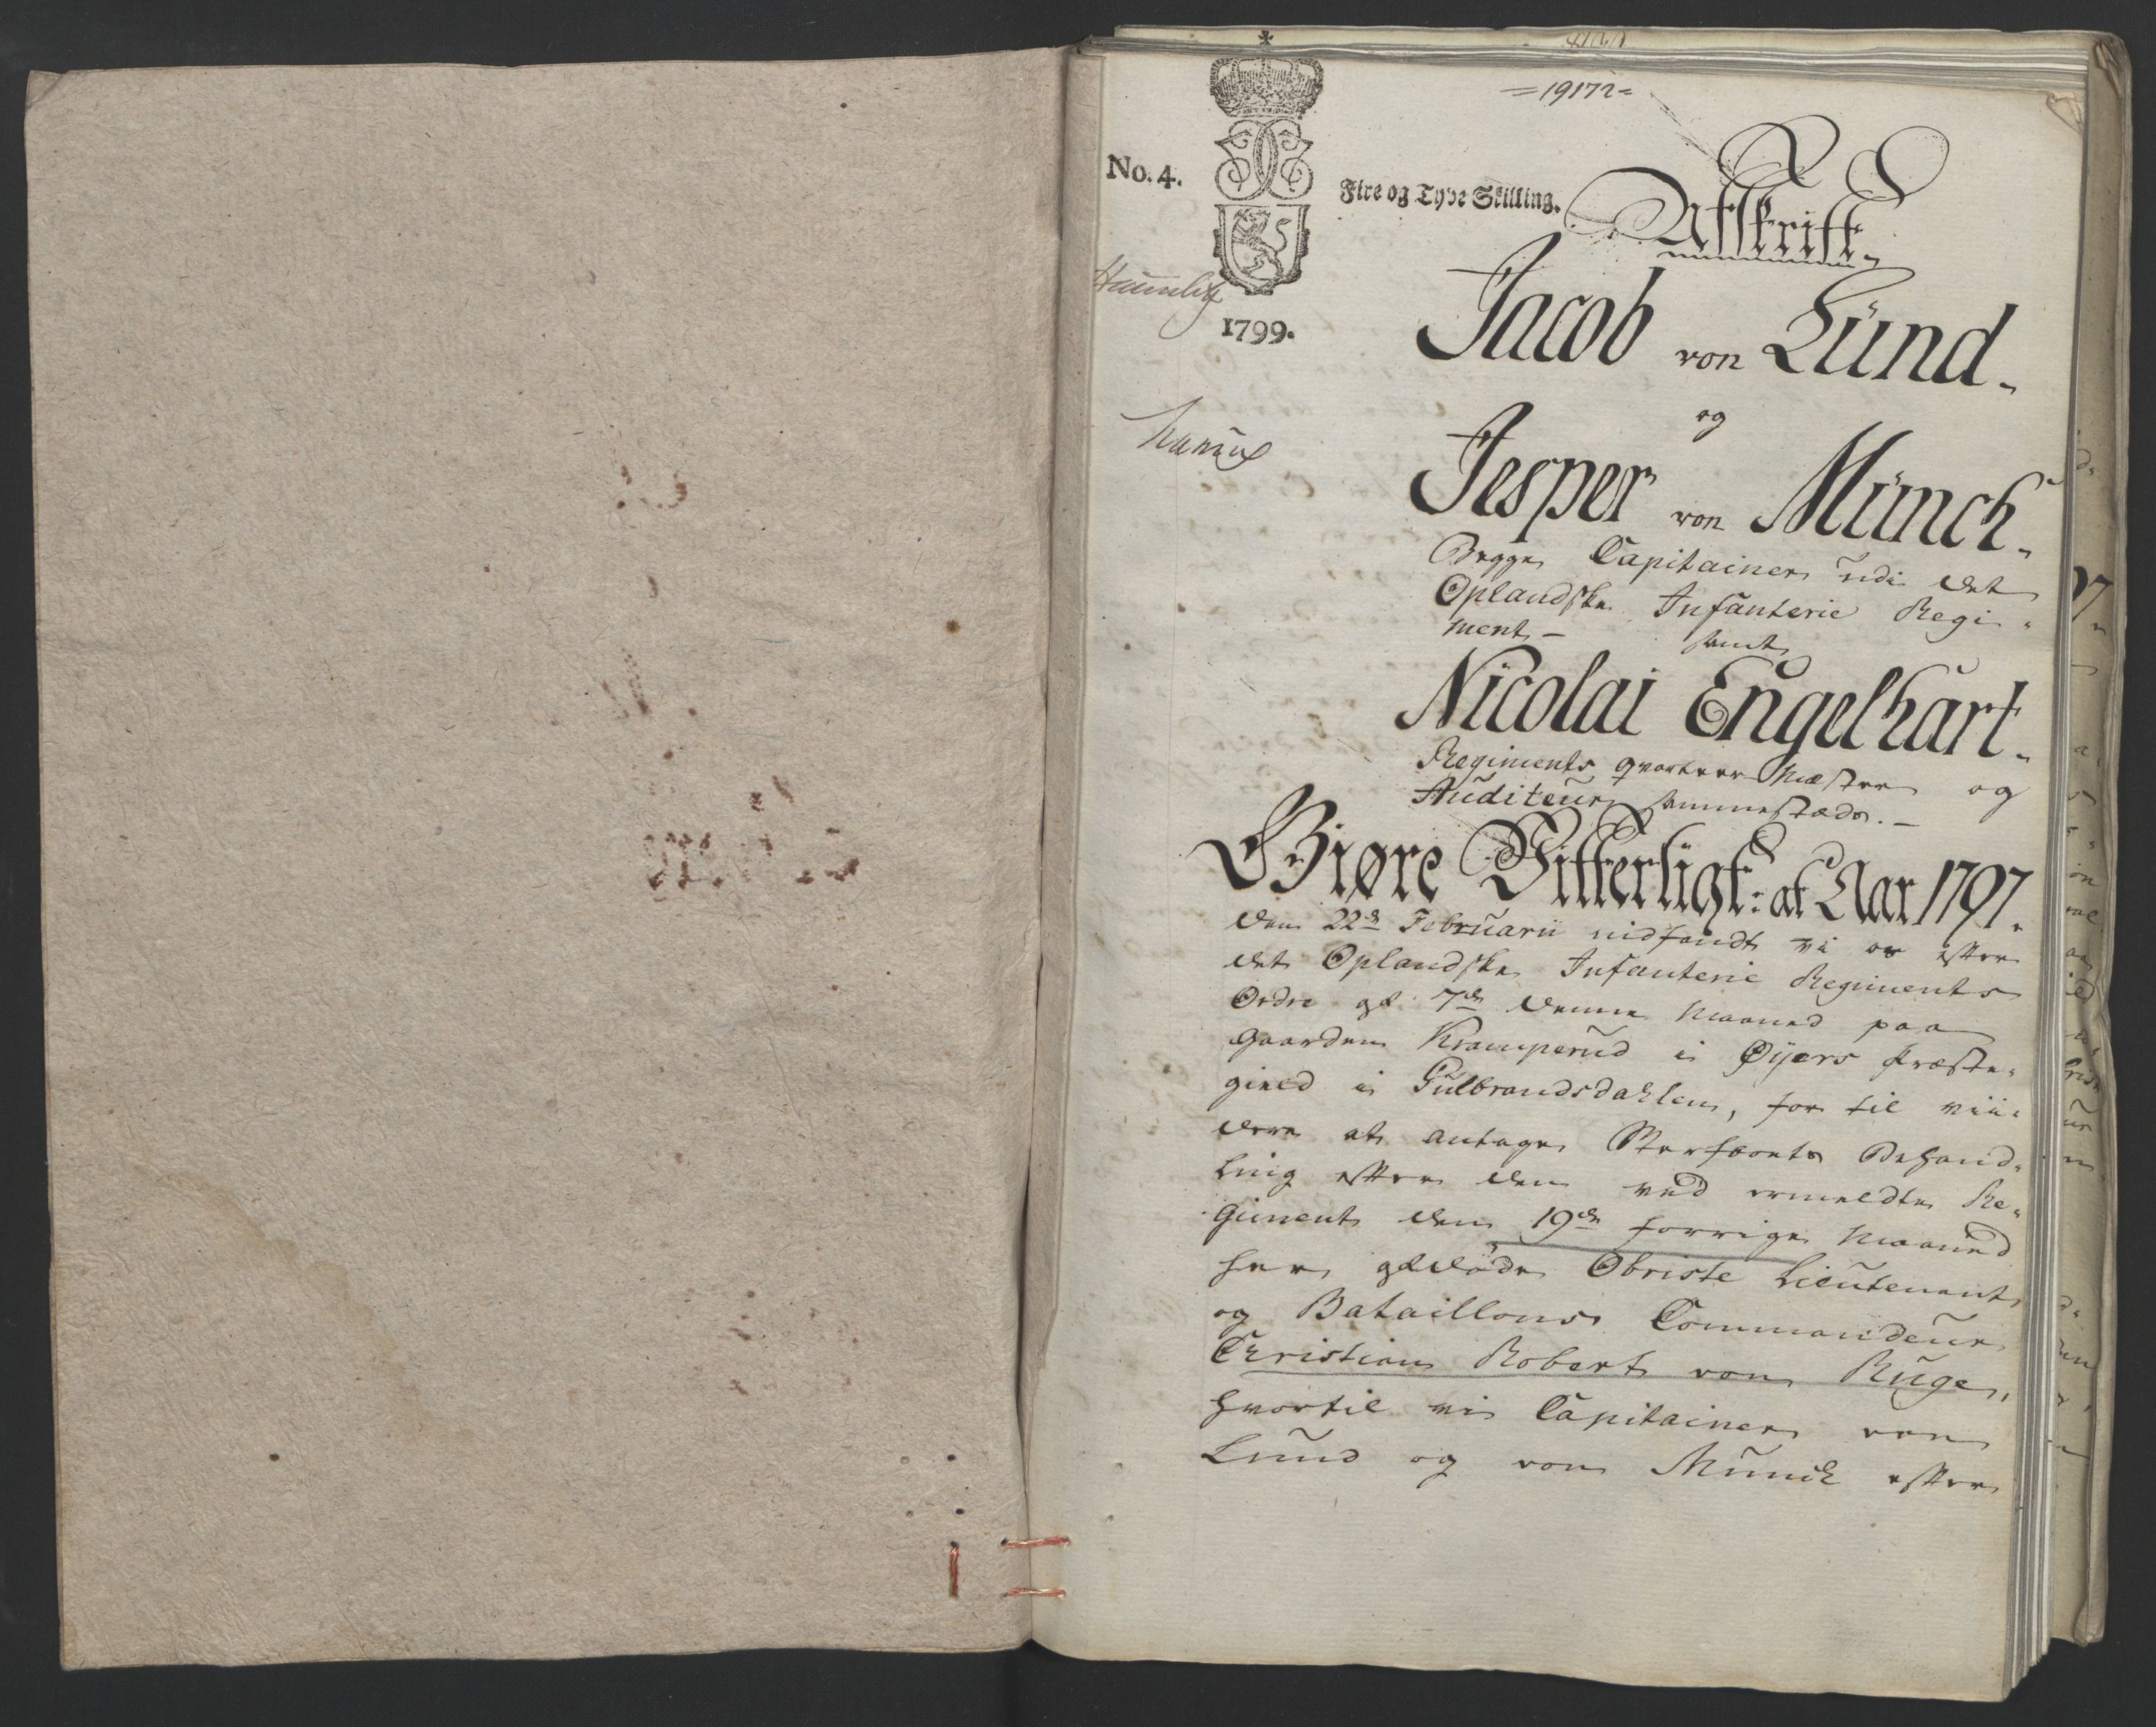 =19172=
No. 4.
Fire og Tyve Skilling.
Afskrift
1799.
Jacob von Lünd.
og
Jesper von Münch.
Begge Capitainer udi det
Oplandske Infanterie Regi-
ment – samt
Nicolai Engelhart.
Regiments qvarteer Mester og
Auditeur sammestæds. –
Giøre Vitterligt: at Aar 1797.
den 22de Februarii indfandt vi os efter
det Oplandske Infanterie Regiments
Ordre af 7de denne Maaned paa
Gaarden Kramperud i Øyers Præste-
gield i Gulbrandsdahlen, for til vii-
dere at antage Sterfboets Behand-
ling efter den ved ermeldte Re-
giment den 19de forrige Maaned
her afdøde Obriste Lieutenant
og Bataillons Commandeur
Christian Robert von Ruge,
hvortil vi Capitainer von
Lund og von Munch efter